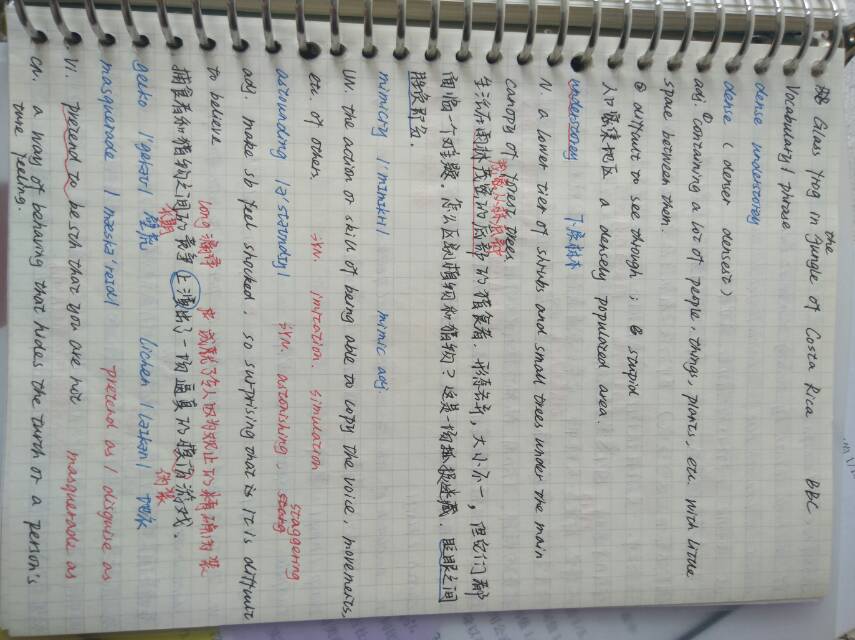 Glass frog in the jungle of Costa Rica BBC
Vocabulary / phrase
dense understorey
dense ( denser densest )
adj. ① containing a lot of people, things, plants, etc. with little
space between them.
② difficult to see through ; ③ stupid
人口密集地区 a densely populated area.
understorey 下层林木
N. a lower tier of shrubs and small trees under the main
canopy of forest trees
生活在雨林茂密的底部的捕食者. 形态各异, 大小不一, 但它们都
面临一个难题. 怎么区别植物和猎物? 这是一场 捉迷藏. 眨眼之间
胜负既分.
mimicry / ˈmɪmɪkri / mimic adj.
UN. the action or skill of being able to copy the voice, movements,
etc. of others SYN. imitation. simulation
astounding / əˈstaʊndɪŋ / SYN. astonishing, staggering
adj. make sb feel shocked. so surprising that is it is difficult
to believe
long 漫序 成就了令人叹为观止的精确伪装
捕食者和猎物之间的竞争 上演出了一场逼真的模仿游戏.
长期 伪装
gecko / ˈɡekəʊ / 壁虎 lichen / ˈlaɪkən / 地衣
masquerade / ˌmæskəˈreɪd / pretend as / disguise as
Vi. pretend to be sth that you are not masquerade as
CN. a way of behaving that hides the turth or a person's
ture feeling.